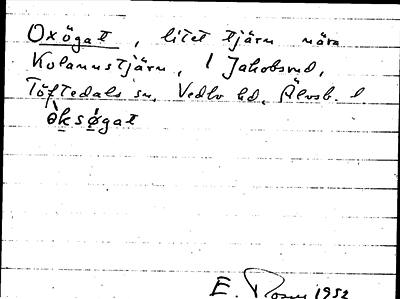 Oxögat, litet tjärn nära
Kolarnstjärn, 1 Jakobsrud,
Töftedals sn, Vedbo hd, Älvsb. l
òksø̀gat
E. Rosen 1952